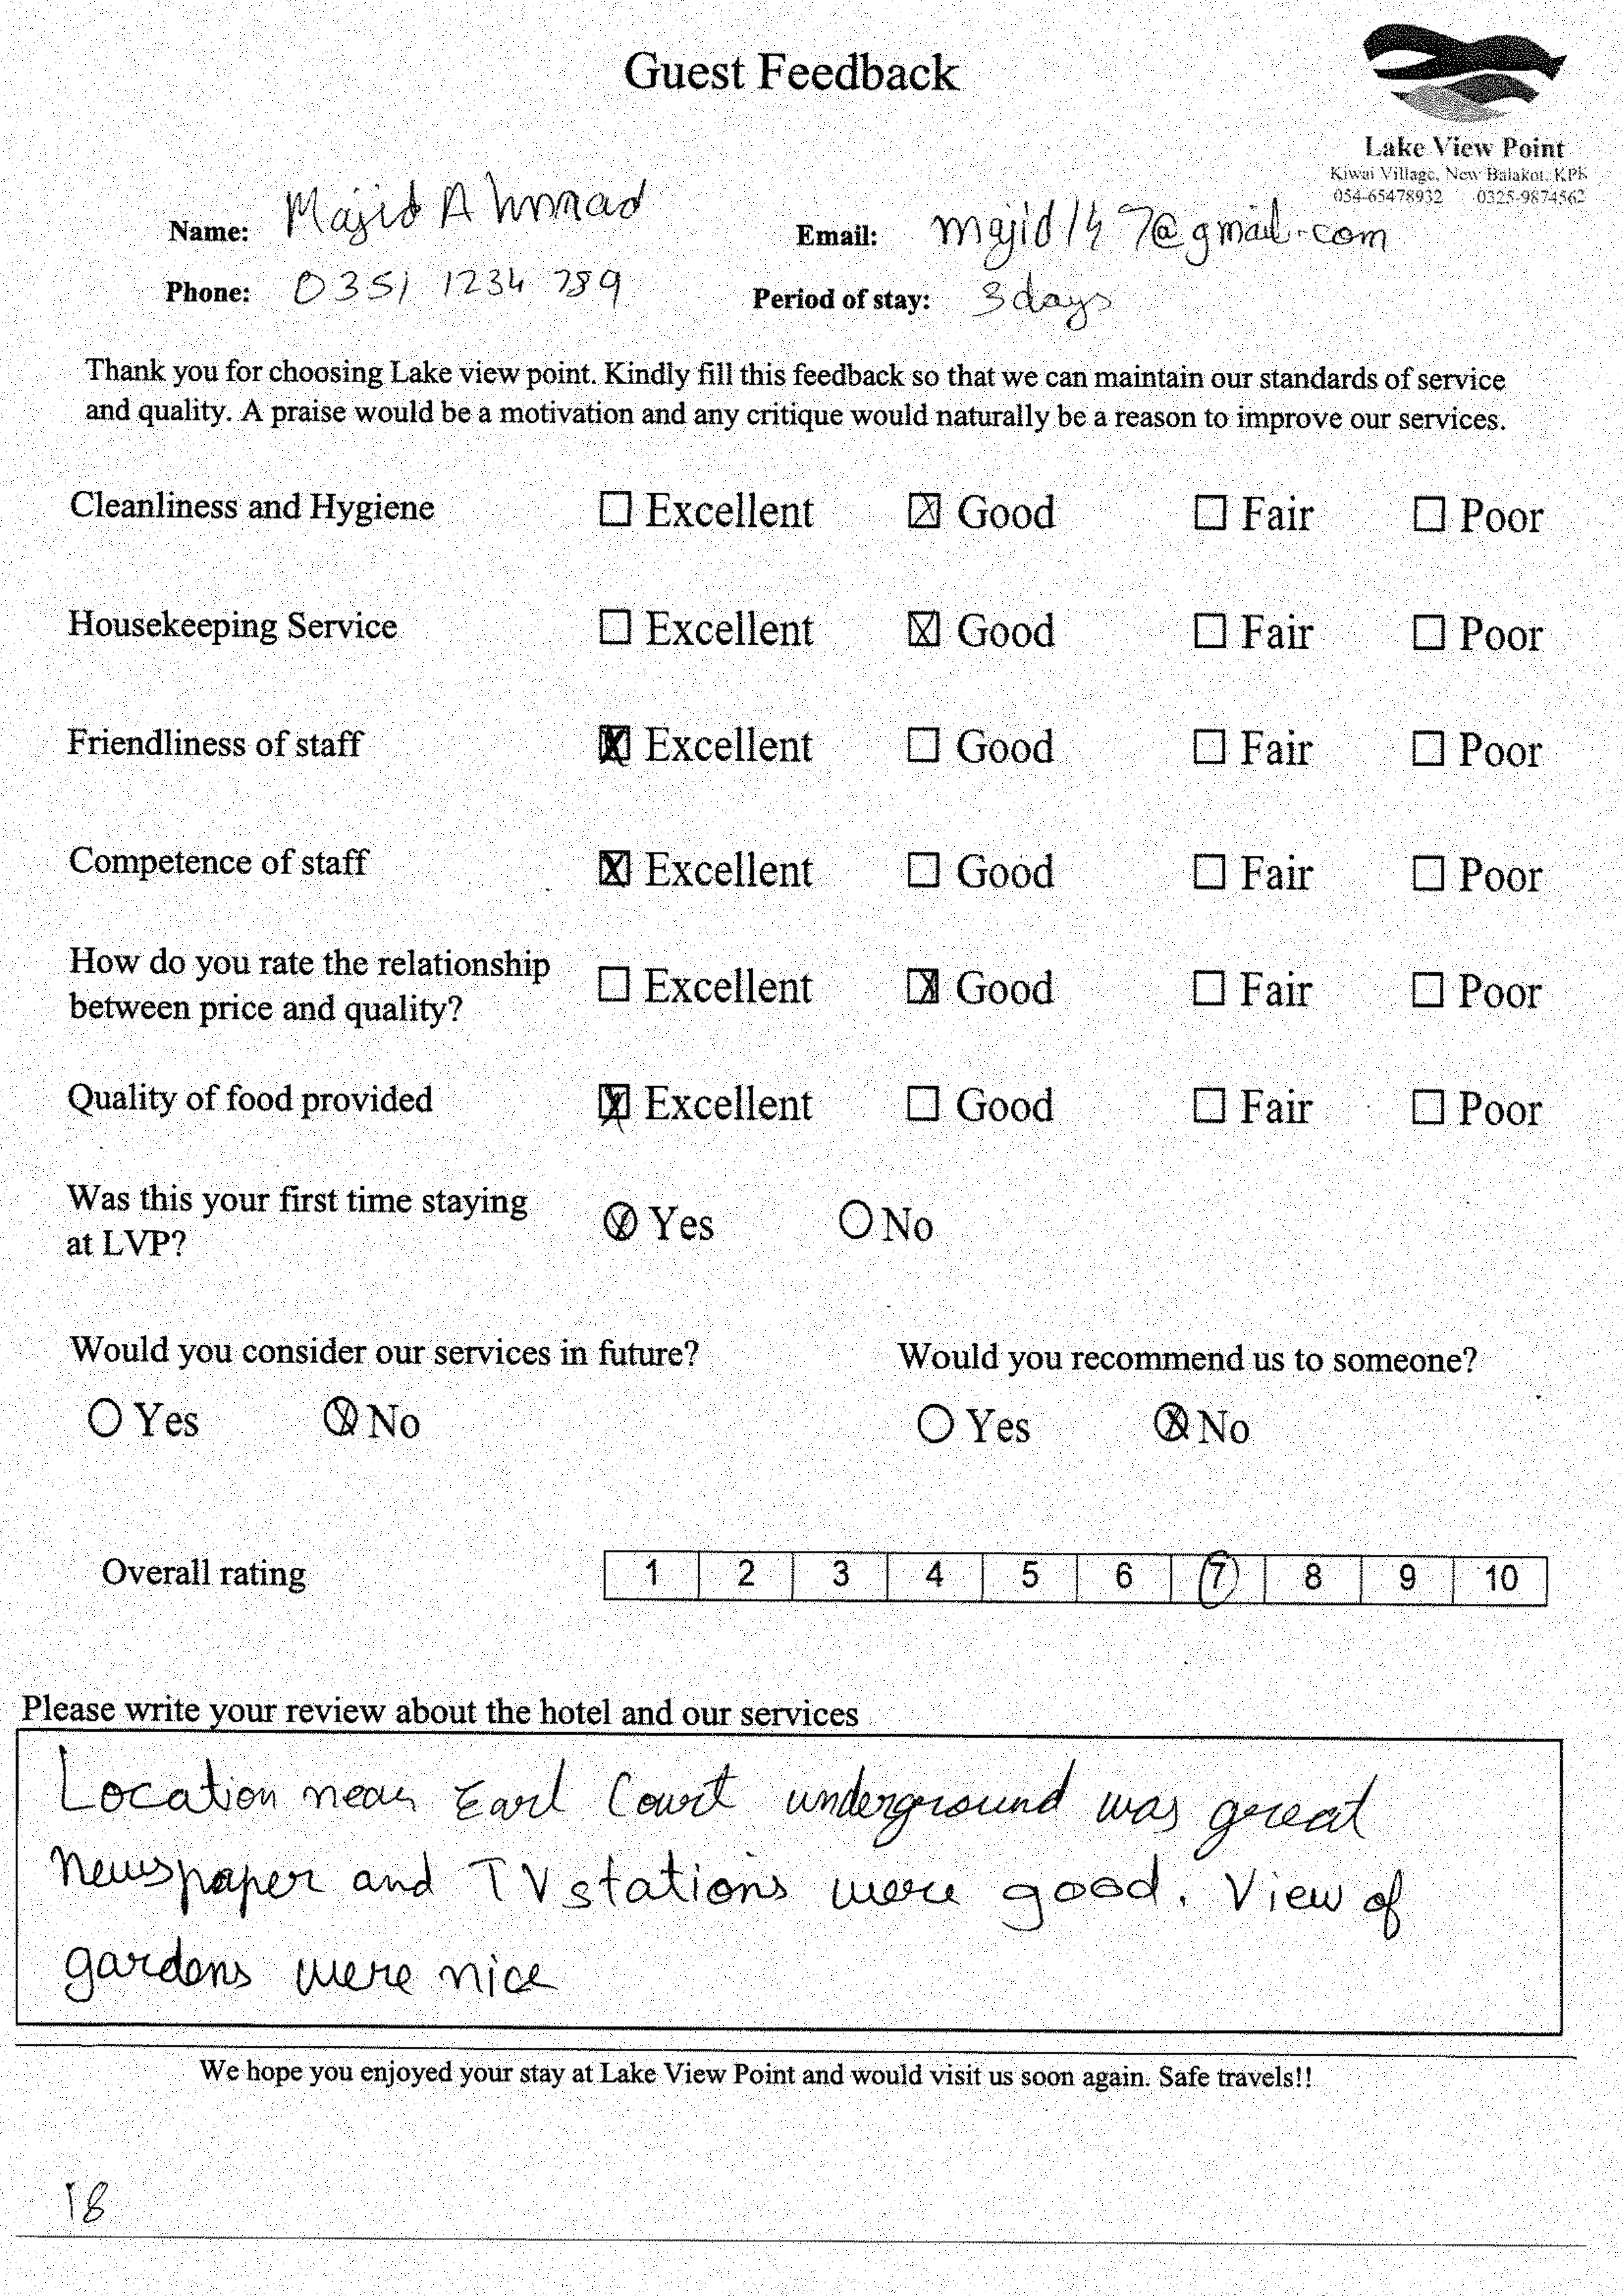 Guest Feedback
Lake View Point
Kiwai Village, New Balakot, KPK
054-65478932 0325-9874562
Name: Majid Ahmad
Email: majid147@gmail.com
Phone: 0351 1234 789
Period of stay: 3 days
Thank you for choosing Lake view point. Kindly fill this feedback so that we can maintain our standards of service
and quality. A praise would be a motivation and any critique would naturally be a reason to improve our services.
Cleanliness and Hygiene ☐ Excellent ☒ Good ☐ Fair ☐ Poor
Housekeeping Service ☐ Excellent ☒ Good ☐ Fair ☐ Poor
Friendliness of staff ☒ Excellent ☐ Good ☐ Fair ☐ Poor
Competence of staff ☒ Excellent ☐ Good ☐ Fair ☐ Poor
How do you rate the relationship
between price and quality? ☐ Excellent ☒ Good ☐ Fair ☐ Poor
Quality of food provided ☒ Excellent ☐ Good ☐ Fair ☐ Poor
Was this your first time staying
at LVP? ⊗ Yes ○ No
Would you consider our services in future?
○ Yes ⊗ No
Would you recommend us to someone?
○ Yes ⊗ No
Overall rating 1 2 3 4 5 6 7 8 9 10
Please write your review about the hotel and our services
Location near Earl Court underground was great
Newspaper and TV stations were good. View of
gardens were nice
We hope you enjoyed your stay at Lake View Point and would visit us soon again. Safe travels!!
18